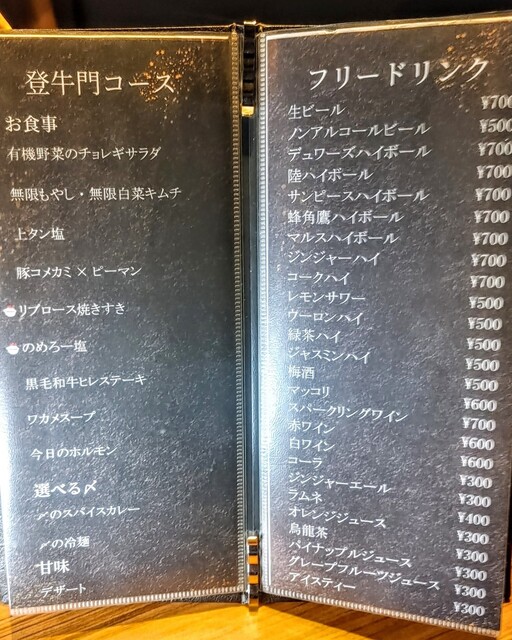 登牛門コース
お食事
有機野菜のチョレギサラダ
無限もやし・無限白菜キムチ
上タン塩
豚コメカミ×ピーマン
リブロース焼きすき
のめろー塩
黒毛和牛ヒレステーキ
ワカメスープ
今日のホルモン
選べる〆
〆のスパイスカレー
〆の冷麺
甘味
デザート
フリードリンク
生ビール ¥700
ノンアルコールビール ¥500
デュワーズハイボール ¥700
陸ハイボール ¥700
サンピースハイボール ¥700
蜂角鷹ハイボール ¥700
マルスハイボール ¥700
ジンジャーハイ ¥700
コークハイ ¥700
レモンサワー ¥500
ウーロンハイ ¥500
緑茶ハイ ¥500
ジャスミンハイ ¥500
梅酒 ¥500
マッコリ ¥600
スパークリングワイン ¥700
赤ワイン ¥600
白ワイン ¥600
コーラ ¥300
ジンジャーエール ¥300
ラムネ ¥400
オレンジジュース ¥300
烏龍茶 ¥300
パイナップルジュース ¥300
グレープフルーツジュース ¥300
アイスティー ¥300